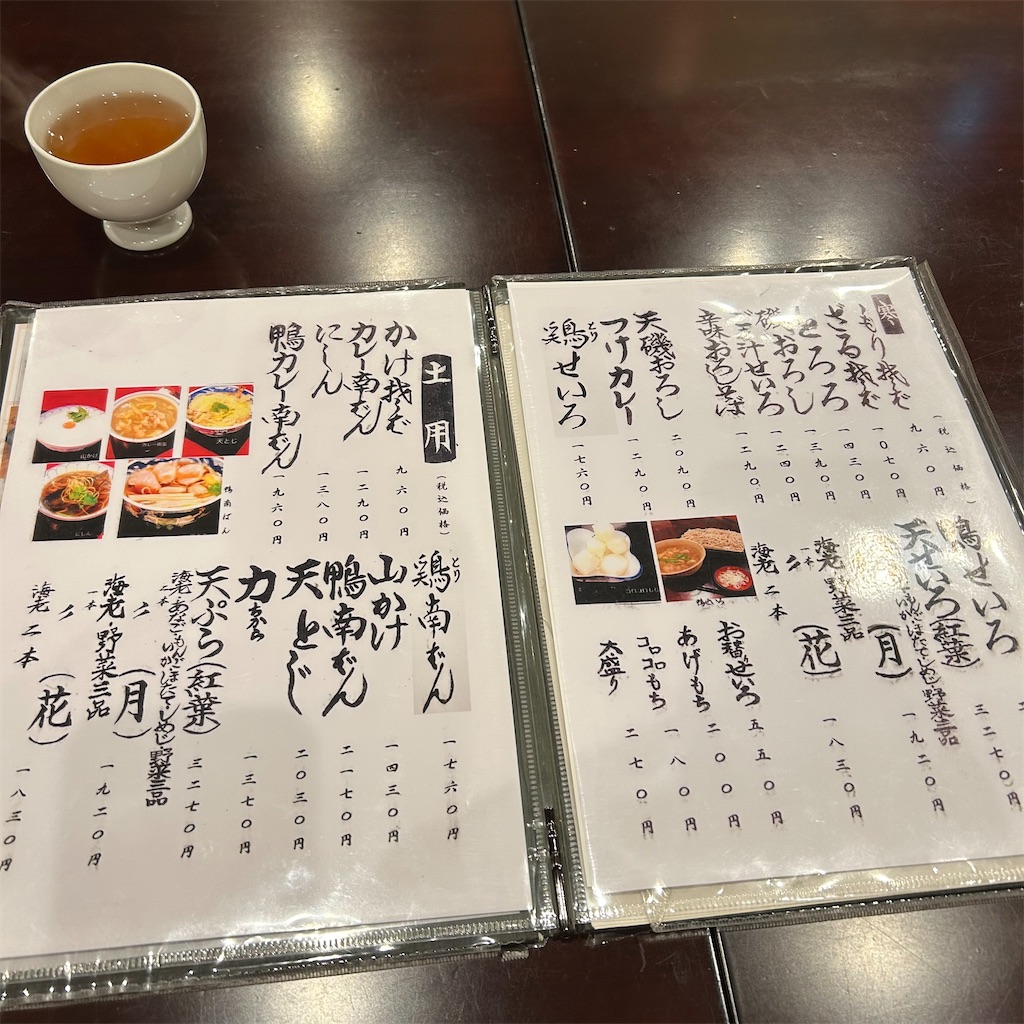 寒
(税込価格)
もりそば 九六〇円
ざるそば 一〇七〇円
とろろ 一四三〇円
磯おろし 一三九〇円
ごま汁せいろ 一二四〇円
辛味おろしそば 一二九〇円
天磯おろし 二〇九〇円
つけカレー
鶏せいろ 一七六〇円
とり
鴨せいろ
天せいろ(紅葉) 三二七〇円
いか・ほたて・しめじ・野菜三品
〃 (月) 一九二〇円
海老一本・野菜三品
〃 (花) 一八三〇円
海老二本
お替せいろ 五五〇円
あげもち 二〇〇円
コロコロもち 一八〇円
大盛り 二七〇円
土用
(税込価格)
かけそば 九六〇円
カレー南ばん 一二九〇円
にしん 一三八〇円
鴨カレー南ばん 一九六〇円
天とじ
カレー南蛮
山かけ
鴨南ばん
にしん
鶏南ばん 一七六〇円
とり
山かけ 一四三〇円
鴨南ばん 二一七〇円
天とじ 二〇三〇円
力 一三七〇円
ちから
天ぷら(紅葉) 三二七〇円
海老二本・あなご・もんごいか・ほたて・しめじ・野菜三品
〃 (月) 一九二〇円
海老一本・野菜三品
〃 (花) 一八三〇円
海老二本